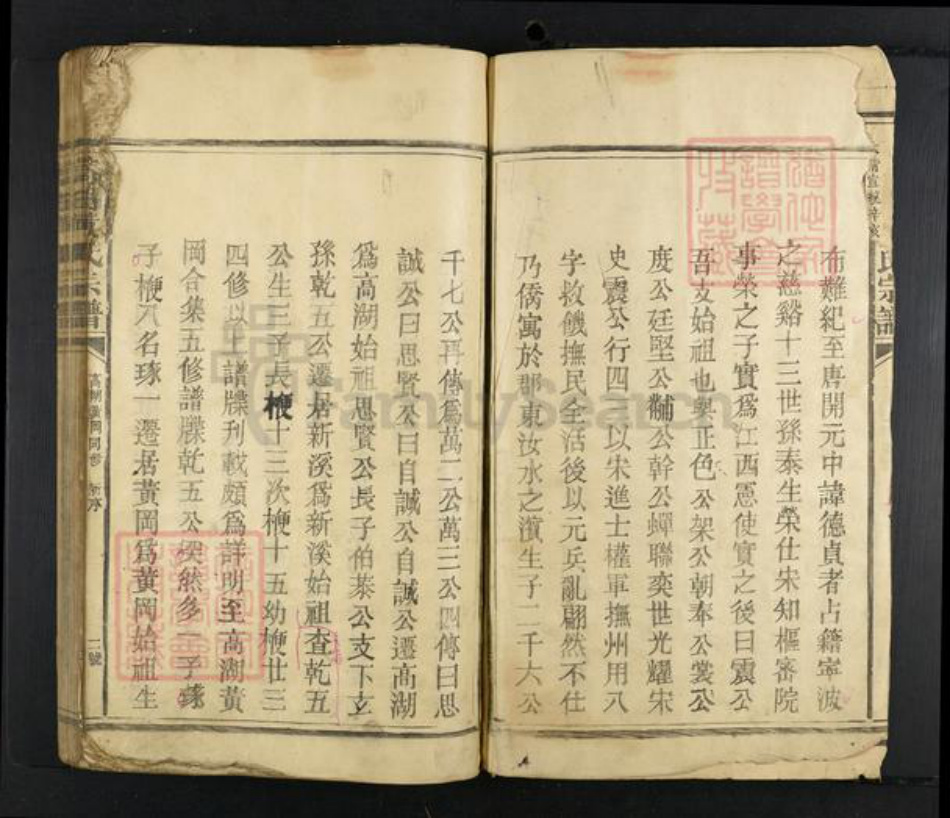 布難紀至唐開元中諱德貞者占籍寧波
之慈谿十三世孫泰生榮仕宋知樞審院
事榮之子實爲江西憲使實之後曰震公
吾支始祖也與正色公架公朝奉公裳公
度公廷堅公黼公幹公蟬聯奕世光耀宋
史震公行四以宋進士權軍撫州用八
字救饑撫民全活後以元兵亂翩然不仕
乃僑寓於郡東汝水之濱生子二千六公
千七公再傳爲萬二公萬三公四傳曰思
誠公曰思賢公曰自誠公自誠公遷高湖
爲高湖始祖思賢公長子伯泰公支下玄
孫乾五公遷居新溪爲新溪始祖查乾五
公生三子長梗十三次梗十五幼梗廿三
四修以上譜牒刋載頗爲詳明至高湖黃
岡合集五修譜牒乾五公突然多一子琢
子梗八名琢一遷居黃岡爲黃岡始祖生
氏宗譜
高湖黃岡同修
二號
氏宗譜
FamilySearch